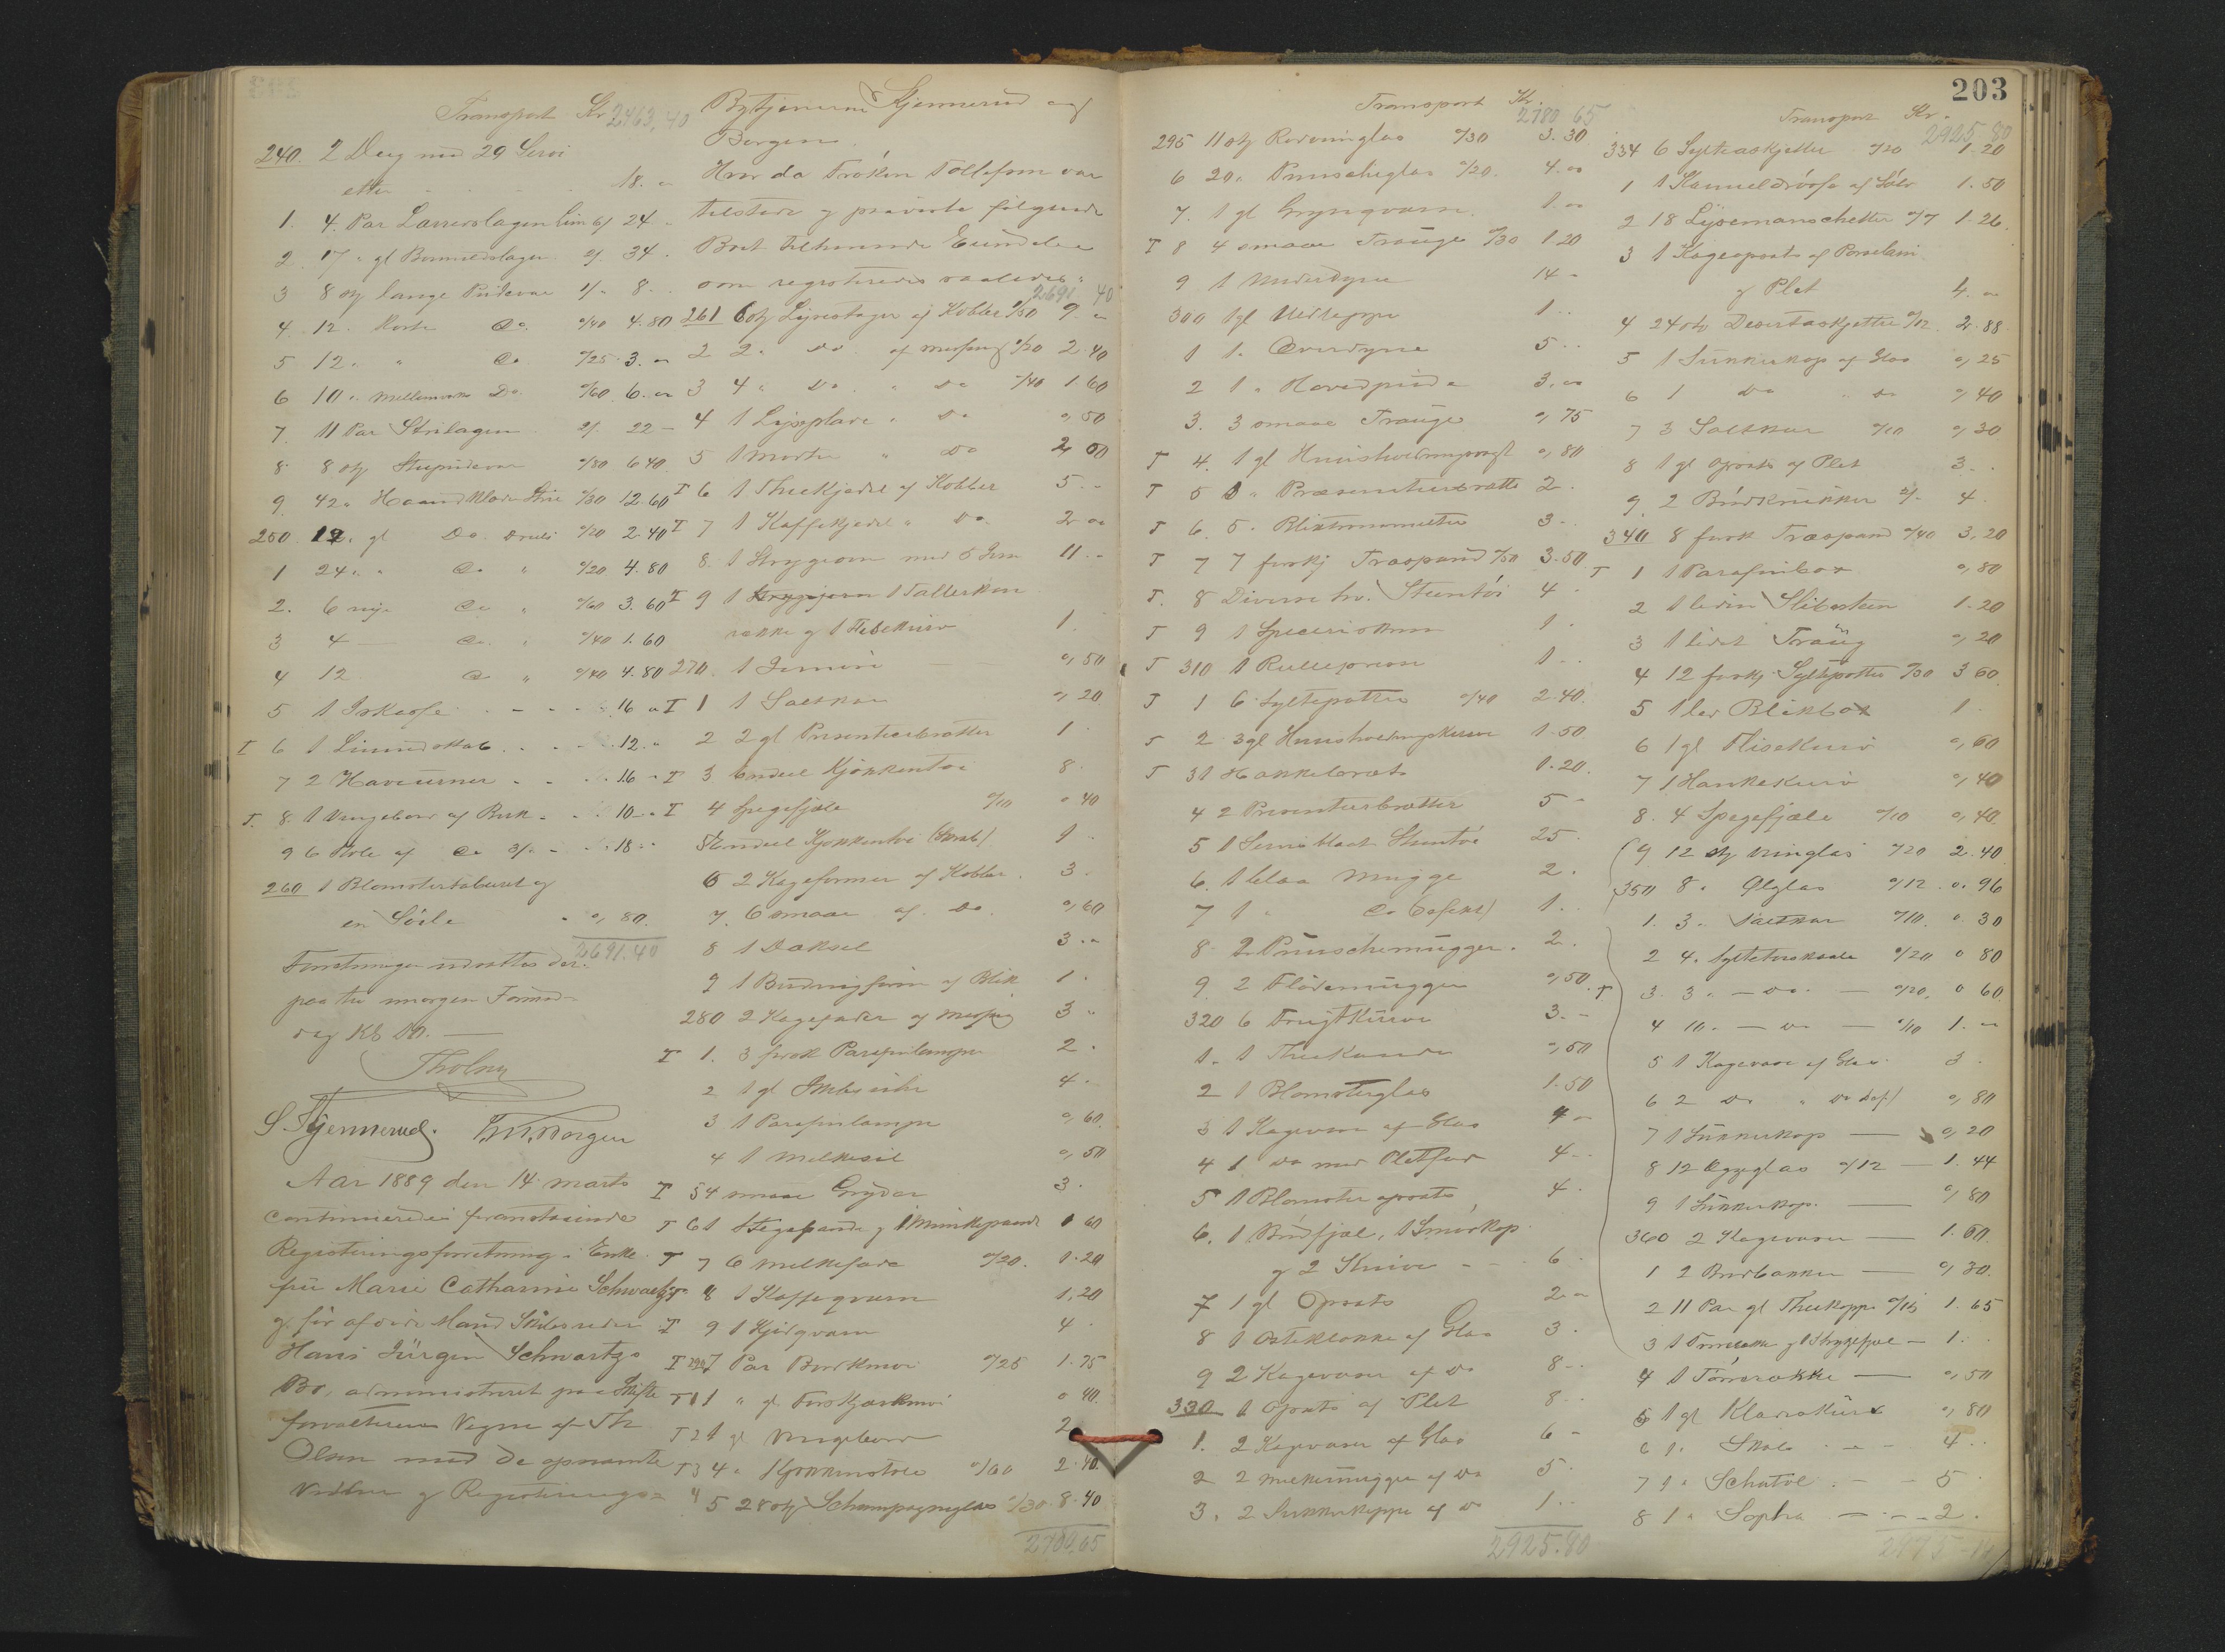 Transport Kr 2463,40
240. 2 Dug med 29 Servi
etter - - - - 18. "
1. 4. Par Lærredslagen Lin 6/ 24 -
2 17 " gl Bommeldslagen 2/. 34.
3 8 stk lange Pudevar 1/- 8 -
4. 12. Korte Do. 0/40 4.80
5 12. " Do 0/25 3. "
6 10 ". Mellemværks Do. 0/60 6. "
7. 11 Par Strilagen 2/. 22 -
8 8 stk Stupudevar 0/80 6.40
9. 42 " Haandklæder Strie 0/30 12.60
250. 12. gl Do. Dreils 0/20 2.40
1 24 " " Do " 0/20 4.80
2. 6 nye Do " 0/60 3.60
3 4 — Do. " 0/40 1.60
4 12 Do " 0/40 4.80
5 1 Iskasse - - - 16 "
T 6 1 Linnedskab - - - 12. "
7 2 Haveurner - - - 16 -
T. 8. 1 Vengebord af Birk - - 10 - "
9 6 Stole af Do 3/. - - 18 - "
260 1 Blomstertaburet og
en Söile - 0,80.
2691.40
Forretningen udsattes der-
paa til imorgen Formid-
dag Kl. 10. —
Tholsen
S. Kjennerud. Borgen
Aar 1889 den 14 marts
continueredes foranstaaende
Registeringsforretning i Enke-
frü Marie Catharine Schwartz's
og för afdöde Mand Skibsreder
Hans Jürgen Schwartz's
Bo, administreret paa Skifte-
forvalterens Vegne af Th
Olsen med de opnævnte
Vidner og Registerings-
Bytjenerne Kjennerud og
Borgen.
Hvor da Fröken Tollefsen var
tilstede og paaviste fölgende
Boet tilhørende Eiendele
som registreredes saaledes:
2691 40
261 6 stk Lysestager af Kobber 1/50 9. "
2 2 " Do. af Messing 1/20 2.40
3 4 " Do. " Do 0/40 1.60
4 1 Lyseplade " Do 0,50
5 1 Morter " Do 2,00
T 6 1 Theekjedel af Kobber 5 - -
T 7 1 Kaffekjedel " Do. 2 "
8. 1 Strygeovn med 5 Jern 11. -
T 9 1 Strygejern 1 Tallerken
række og 1 Flisekurv 1.
270. 1 Jernvin — 0,50
T 1 1 Saltkar 0,20
2 2 gl Presenteerbrætter 1
T 3 Endeel Kjökkentöi 8.
T 4 Spegefjæle 0/10 0 40
5 Endeel Kjökkentöi (Skrab) 1 -
6 2 Kageformer af Kobber. 3.
7. 6 smaae af. Do. 0,60
8 1 Dæksel 3. "
9 1 Budingform af Blik 1.
280 2 Kagefade af Messing 3 "
T 1. 3 forsk Parafinlampe 2.
2 1 gl 4.
3 1 Parafinlampe 0,60.
4 1 Melkesil 0,50
T 5 4 smaae Gryder 3.
T 6 1 Stegepande og 1 Munkepande 1 60
T 7 6 Melkefade 0/20. 1.20
T 8 1 Kaffeqværn 1,20
T 9 1 Kjödqværn 4.
T 290 7 Par Bordknive 0/25 1.75
T 1 1 " gl. Forskjærkniv 0 40.
T 2 1 gl Vengebord 2
T 3 4 " Kjökkenstole 0/60 2.40.
5 28 stk Schampagneglas 0/30. 8.40
2780.65
203
Transport Kr. 2780 65
295 11 stk Rødvinsglas 0/30 3.30
6 20 " Punscheglas 0/20. 4. "
7. 1 gl Grynqværn. 1. "
T 8 4 smaae Trauge 0/30 1 20
9 1 Underdyne 14 -
300 1 gl Uldteppe 1 . .
1 1. Overdyne 5 . .
2 1 " Hovedpude 3. "
3. 3 smaae Trauge 0,75
T 4. 1 gl Huusholdningsvægt 0,80
T 5 1 " Præsenteerbræt 2.
T 6. 5. Blikkrummester 3 -
T 7 7 forskj Træspand 0/50 3.50
T. 8 Diverse hv. Steentöi 4 -
T 9 1 Specerieskrin 1.
T 310 1 Rullepresse 1 . .
T 1 6 Syltepotter 0/40 2.40.
T 2 3 gl Huusholdningskurve 1.50.
T 3 1 Hakkebræt 1.20.
4 2 Presenteerbrætter 5 -
5 1 Servis blaat Steentöi 25.
6. 1 blaa Mugge 2.
7 1 " Do (defect) 1. .
8. 2 Punschemugger. 2.
9. 2 Flödemugger 0,50.
320 6 Frugtkurve 3. -
1. 1 Theekande 0,50
2 1 Blomsterglas 1.50
3 1 Kagevase af Glas 4 -
4 1 Do med Pletfod 4 - -
5 1 Blomster opsats 4 -
6. 1 Brödfjæl, 1 Smörkop
og 2 Knive - - 6 -
7 1 gl Opsats 2. "
8 1 Osteklokke af Glas 3.
9 2 Kagevaser af Do 8 - .
330 1 Opsats af Plet 8 - .
1. 2 Kagevaser af Glas 6 -
2 2 Melkemugger af Do 5 -
3. 2 Sukkerkopper af Do 1 . -
2925.80
Transport Kr. 2925.80
334 6 Sylteaskjetter 0/20 1.20
1 1 Kameeldröse af Sölv 1.50
2 18 Lysemanschetter 0/7 1.26.
3 1 Kageopsats af Porselain
og Plet 4. "
4 24 stk Desertaskjetter 0/12. 2.88
5 1 Sukkerkop af Glas 0,25
6 1 Do " Do 0,40
7 3 Saltkar 0/10 0,30
8 1 gl Opsats af Plet 3 . .
9. 2 Brödkrukker 2/- 4 .
340 8 forsk Træspand 0/40 3,20
T 1 1 Parafinbox 0,80
2 1 liden Slibesteen 1.20
3 1 lidet Traug 0,20
4 12 forskj. Syltepotter 0/30 3 60.
5 1 lav Blikbox 1
6 1 gl Flisekurv 0,60
7 1 Hankekurv 0,40
8. 4 Spegefjæle 0/10 0,40.
9 12 stk Vinglas 0/20 2.40.
350 8 " Ølglas 0/12. 0.96
1. 3 " Saltkar 0/10. 0. 30
2 4. Sylteteraskaale 0/20 0 80
T 3. 3 " — Do. — 0/20. 0 60.
4 10. — Do — 0/10 1. "
5 1 Kagevase af Glas. 3.
6 2 Do " Do def) 0,80
7 1 Sukkerkop — 0,20
8 12 Æggeglas 0/12 — 1.44
9 1 Sukkerkop. — 0,80
360 2 Kagevaser — 1.60.
1 2 Brödbakker — 0,30.
2 11 Par gl Theekopper 0/15 1.65
3 1 og 1 Strygefjæl — 1.
4 1 Törrerække — 0,50
5 1 gl Klædeskurv 0,80
6 1. Skab - - - 4. .
7 1 " Schatol. - - 5
8 1 " Sopha — - - 2.